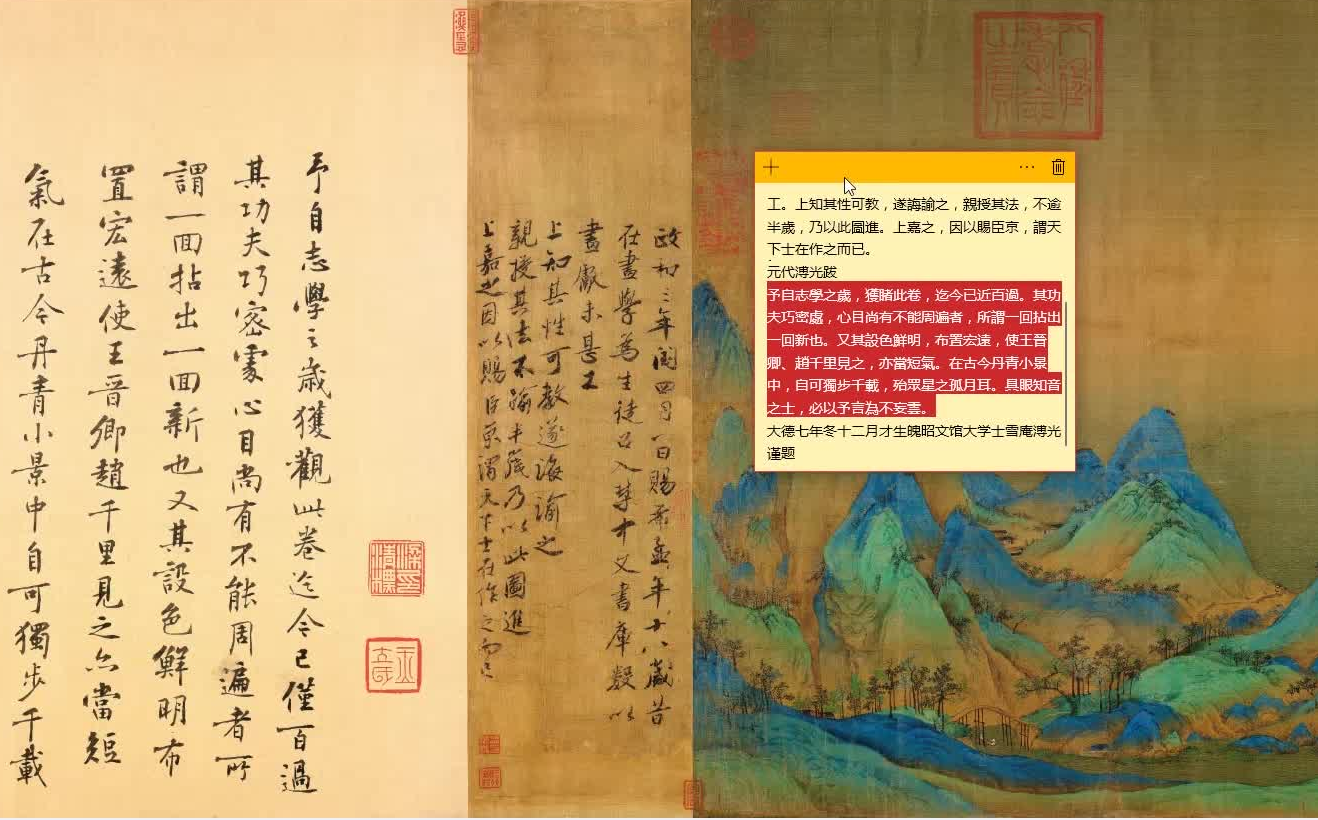 工。上知其性可教，遂誨諭之，親授其法，不逾
半歲，乃以此圖進。上嘉之，因以賜臣京，謂天
下士在作之而已。
元代溥光跋
予自志學之歲，獲睹此卷，迄今已近百過。其功
夫巧密處，心目尚有不能周遍者，所謂一回拈出
一回新也。又其設色鮮明，布置宏遠，使王晉
卿、趙千里見之，亦當短氣。在古今丹青小景
中，自可獨步千載，殆眾星之孤月耳。具眼知音
之士，必以予言為不妄雲。
大德七年冬十二月才生魄昭文馆大学士雪庵溥光
谨题
政和三年閏四月一日賜希孟年十八歲昔
在畫學為生徒召入禁中文書庫數以
畫獻未甚工
上知其性可教遂誨諭之
親授其法不踰半歲乃以此圖進
上嘉之因以賜臣京謂天下士在作之而已
予自志學之歲獲觀此卷迄今已僅百過
其功夫巧密處心目尚有不能周遍者所
謂一回拈出一回新也又其設色鮮明布
置宏遠使王晉卿趙千里見之亦當短
氣在古今丹青小景中自可獨步千載